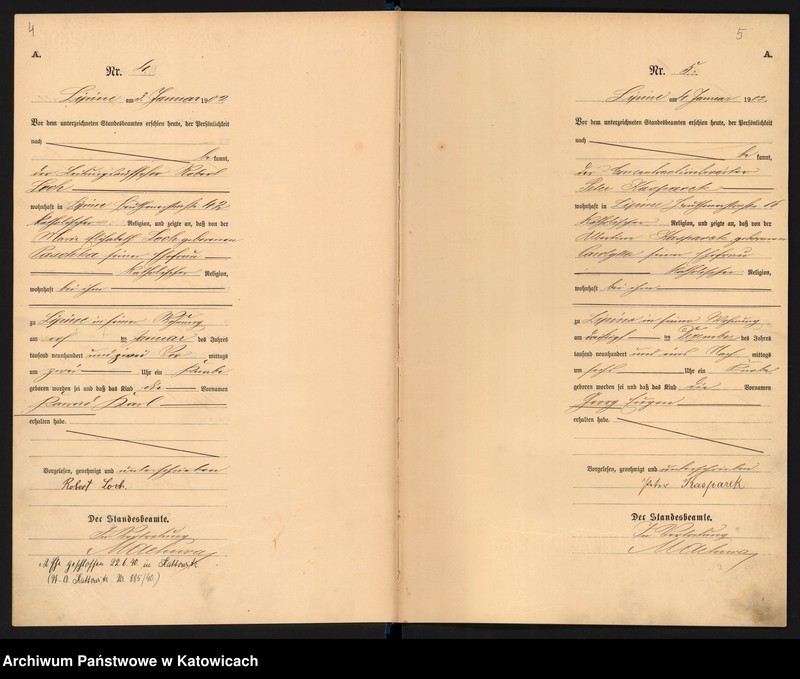 4
A.
Nr. 4.
Lipine am 3. Januar 1902
Vor dem unterzeichneten Standesbeamten erschien heute, der Persönlichkeit
nach
be kannt,
der Robert
Loch
wohnhaft in Lipine
katholischer Religion, und zeigte an, daß von der
Maria Elisabeth Loch geborenen
Paschka seiner Ehefrau
katholischer Religion,
wohnhaft bei ihm
zu Lipine in seiner Wohnung
am Januar des Jahres
tausend neunhundert und zwei Vor mittags
um zwei Uhr ein Knabe
geboren worden sei und daß das Kind die Vornamen
Karl
erhalten habe.
Vorgelesen, genehmigt und unterschrieben
Robert Loch
Der Standesbeamte.
In Vertretung
geschlossen 22.6.40. in Kattowitz
(St. A. Kattowitz Nr. 885/40)
5
A.
Nr. 5.
Lipine am 4. Januar 1902.
Vor dem unterzeichneten Standesbeamten erschien heute, der Persönlichkeit
nach
be kannt,
der
Peter Kasparek
wohnhaft in Lipine 16
katholischer Religion, und zeigte an, daß von der
Kasparek geborenen
seiner Ehefrau
katholischer Religion,
wohnhaft bei ihm
zu Lipine in seiner Wohnung
am Dezember des Jahres
tausend neunhundert und eins Nach mittags
um sechs Uhr ein Knabe
geboren worden sei und daß das Kind die Vornamen
Georg Eugen
erhalten habe.
Vorgelesen, genehmigt und unterschrieben
Peter Kasparek
Der Standesbeamte.
In Vertretung
Archiwum Państwowe w Katowicach